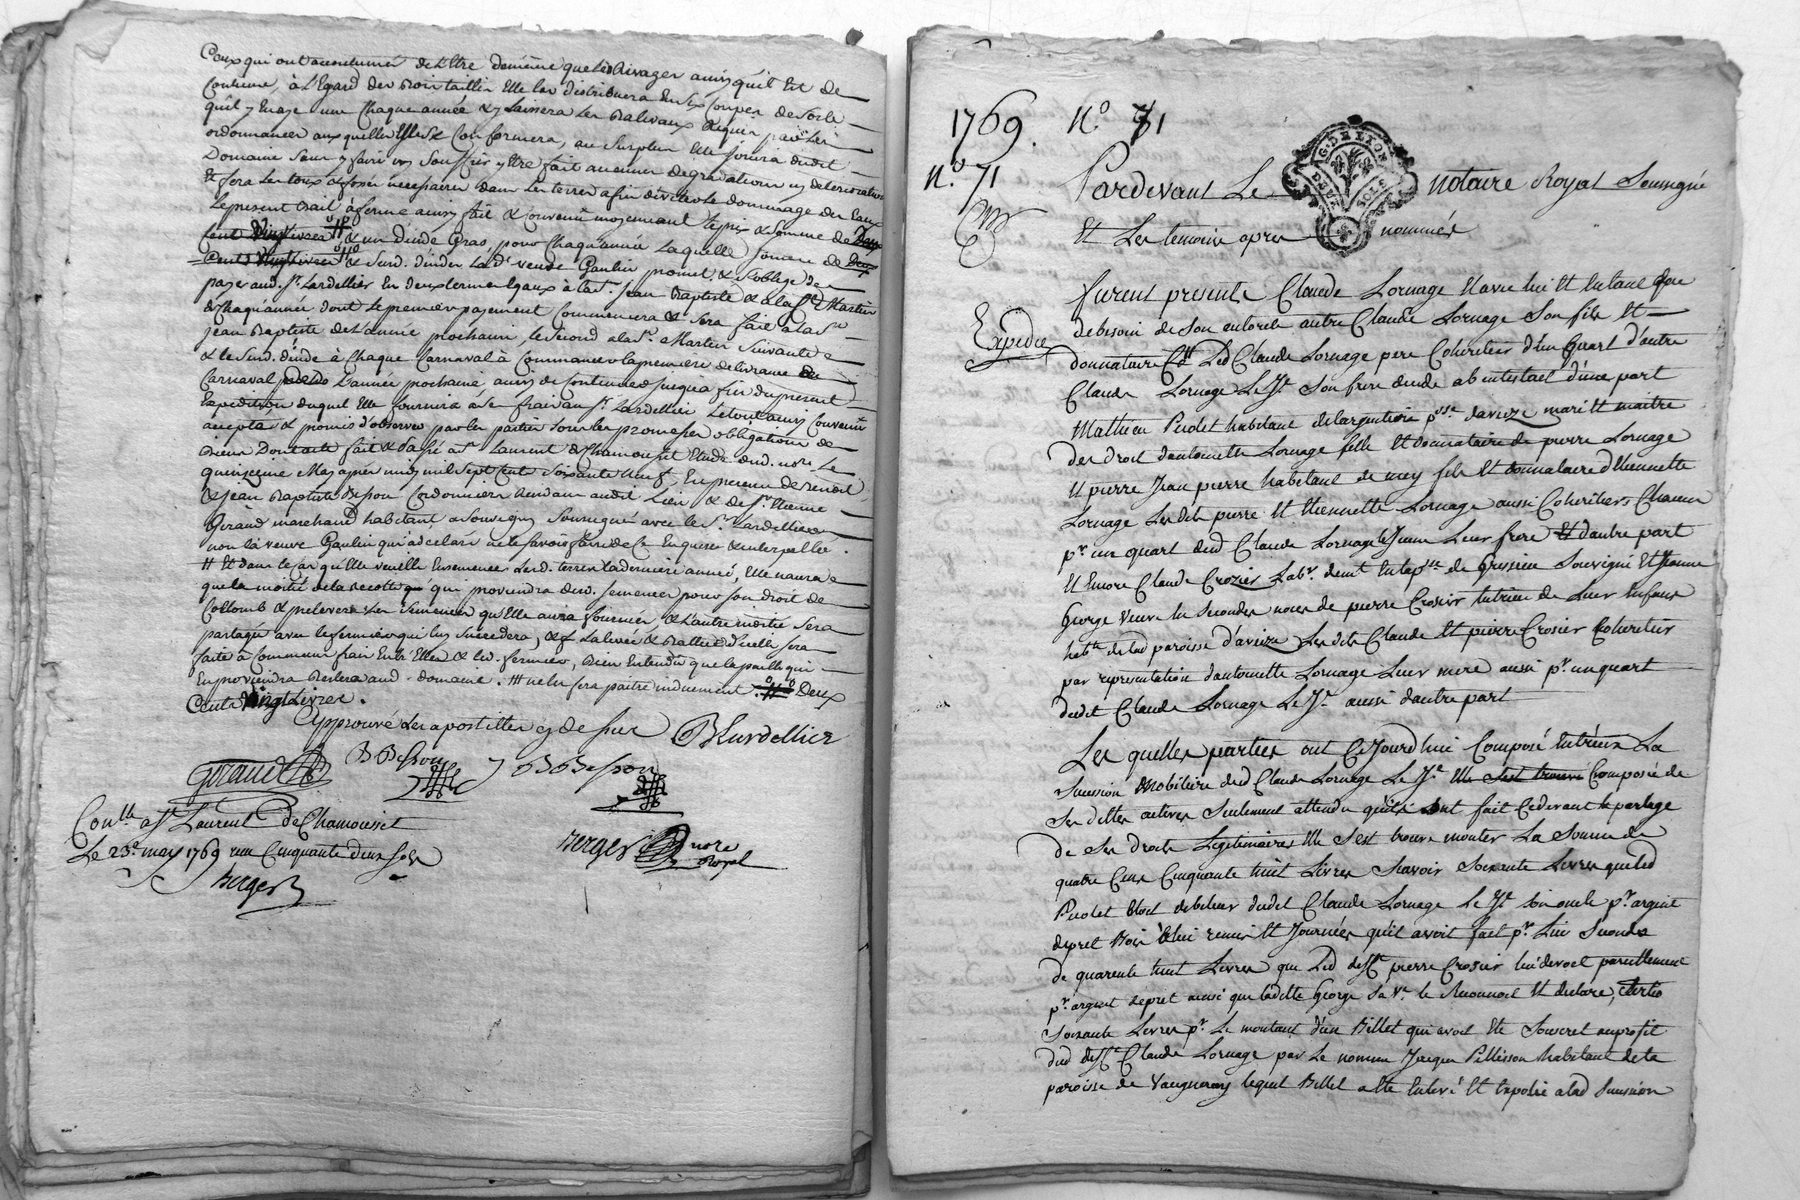 Ceux qui ont accoutumé de l'être de même que les Rivages ainsy qu'il est de
Coutume, à l'Egard des Bois taillis Elle les distribuera en six coupes de sorte
qu'il y en aye une chaque année & y laissera les Balivaux Requis par les
ordonnances auxquelles Elle se Conformera, au surplus Elle jouira dudit
Domaine sans y faire ny souffrir y être fait aucunes degradations ny deteriorations
Et fera les fossés necessaires dans les terres afin d'eviter le dommage des Eaux
Le present Bail à ferme ainsy fait & convenu moyennant le prix & somme de Deux
Cent Vingt livres & un dinde Gras, pour chaque année laquelle somme de Deux
Cents Vingt livres & Susd. dindes lad. veuve Gaulin promet & s'oblige de
payer aud. Sr. Lardellier En deux termes Egaux à la St. Jean Baptiste & à la St Martin
de Chaque année, dont le premier payement commencera & sera fait à la St
Jean Baptiste de l'année prochaine, le second à la St. Martin suivante
& le Susd. dinde à Chaque Carnaval à commancer la premiere delivrance au
Carnaval de l'année prochaine ainsy de Continuer jusqu'a fin du present
Expedition duquel Elle fournira à ses frais au Sr. Lardellier Le tout ainsy convenu
accepté & promis d'observer par les parties sous les promesses obligations de
biens Dont acte fait & Passé à St Laurent de Chamousset Etude dud. nore. Le
quinzieme May après midy mil sept cent soixante neuf, En presence de Benoit
& Jean Baptiste Besson Cordonniers Residans audit Lieu & de Sr. Etienne
Giraud marchand habitant à Souvigny Soussignés avec le Sr. Lardellier
non la veuve Gaulin qui a declaré ne le sçavoir faire de ce Enquise & interpellée.
# Et dans le cas qu'Elle veuille Ensemencer lesd. terres la derniere année, Elle n'aura
que la moitié de la Recolte qui proviendra desd. semences pour son droit de
Collomb & prelevera les semences qu'Elle aura fournies, & l'autre moitié sera
partagée avec le fermier qui luy succedera, & la levée & Battue d'icelle sera
faite à commun frais Entr'Elle & led. fermier, Bien Entendu que la paille qui
En proviendra Restera aud. domaine.
Cents Vingt Livres.
Approuvé Les apostilles cy dessus BLardellier
Giraud B Besson J B Besson
Conlle. a St Laurent de Chamousset
Le 23e. may 1769 reçu Cinquante deux sols
Berger
Berger nore Royal
1769. No 71
N.o 71
G. DE LYON
DEUX SOLS
Pardevant Le notaire Royal Soussigné
Et Les temoins apres nommés
Expedié
furent presents Claude Lornage
de besoin de son autorité autre Claude Lornage son fils Et
donnataire Led Claude Lornage pere Coheritier d'un quart d'autre
Claude Lornage Le Je. son frere decede abintestat d'une part
Mathieu Piolet habitant de l'argentiere psse. daveize mari Et maitre
des droit d'antoinette Lornage fille Et donnataire de pierre Lornage
Et pierre Jean pierre habitant de mey fils Et donnataire d'Etiennette
Lornage Lesdits pierre Et Etiennette Lornage aussi Coheritiers Chacun
pr. un quart dud Claude Lornage Le Jeune Leur frere Et d'autre part
Et Encore Claude Crozier Labr. demt En la psse de Grezieu Souvigni Et Jeanne
George veuve En secondes noces de pierre Crozier tutrice de Leur Enfans
habte. de lad paroisse d'aveize Lesdits Claude Et pierre Crosier Coheritiers
par representation d'antoinette Lornage Leur mere aussi pr. un quart
dudit Claude Lornage Le Je. aussi d'autre part
Les quelles parties ont Cejourd'hui Composé Entr'eux La
sucession Mobiliere dud Claude Lornage Le Je. Elle s'est trouvé Composée de
ses dettes actives seulement attendu qu'ils ont fait Cidevant le partage
de ses droits Legitimaires Elle s'est trouvé monter La somme de
quatre Cens Cinquante huit Livres scavoir soixante Livres que led
Piolet Etoit debiteur dudit Claude Lornage Le Je. son oncle pr. argent
de pret Bois Et journées qu'il avoit fait pr. Lui secondo
de quarente huit Livres que Led deff. pierre Crosier lui devoit pareillement
pr. argent de pret ainsi que ladite George sa ve. le Reconnoit Et declare, tertio
soixante Livres pr. Le montant d'un Billet qui avoit Eté souscrit au profit
dud deff. Claude Lornage par Le nommé Jacques Pellisson habitant de la
paroisse de Vaugneray lequel Billet a eté